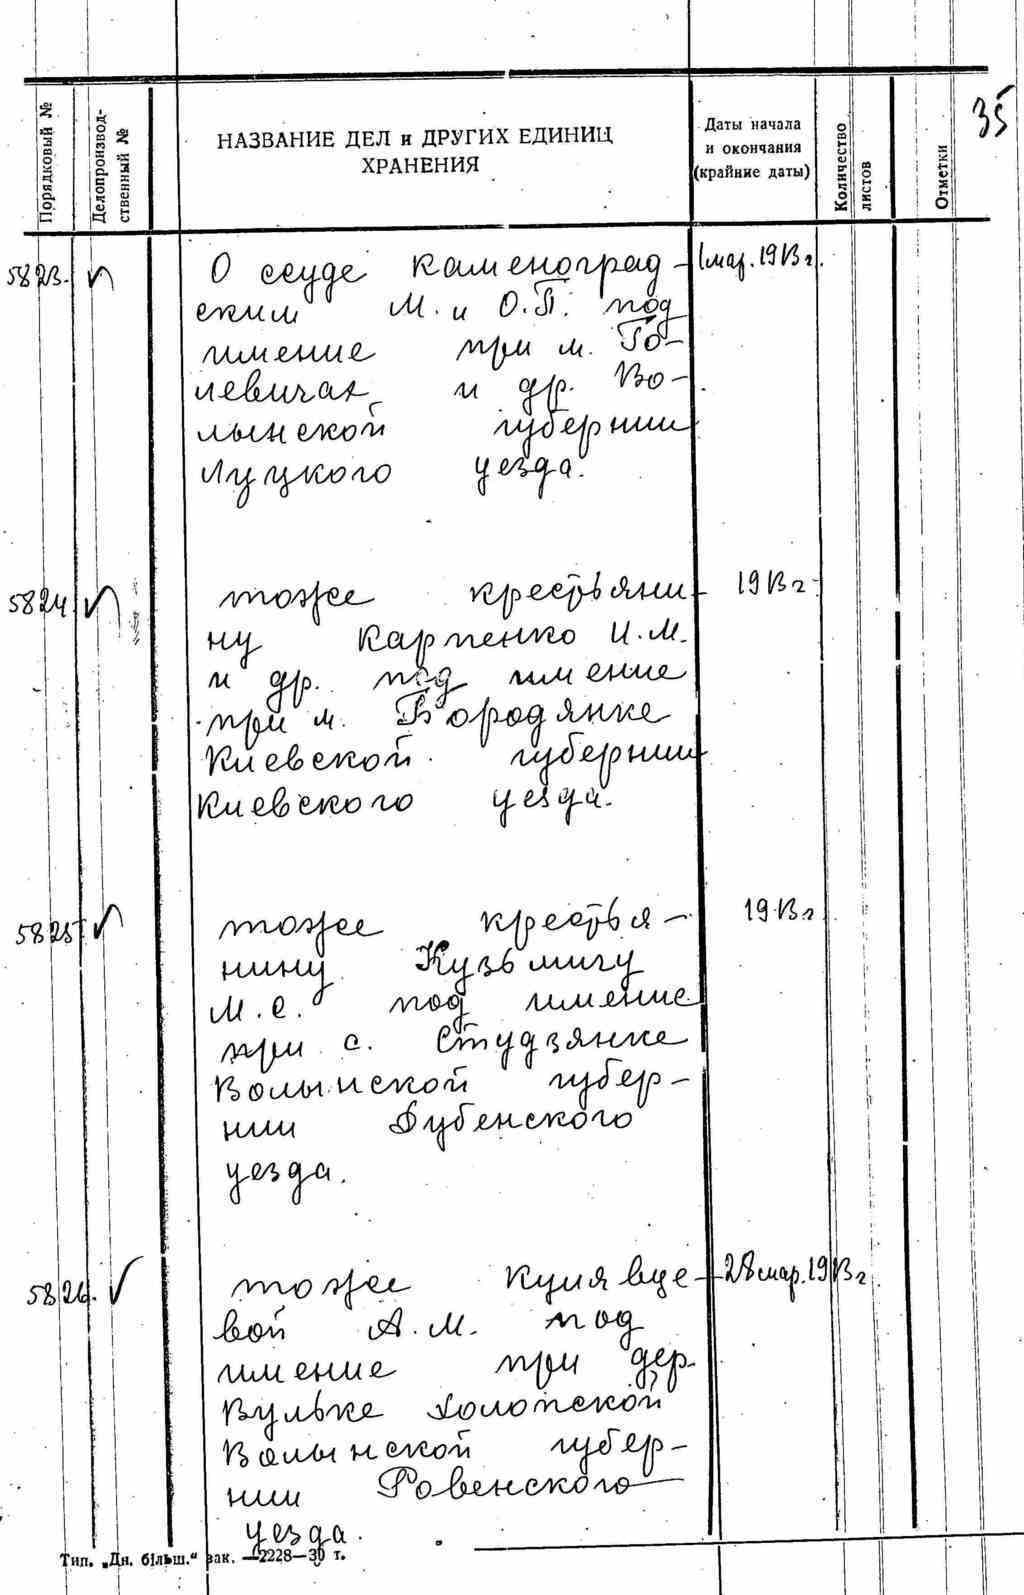 35
Порядковый №
Делопроизвод-
ственный №
НАЗВАНИЕ ДЕЛ и ДРУГИХ ЕДИНИЦ
ХРАНЕНИЯ
Даты начала
и окончания
(крайние даты)
Количество
листов
Отметки
5823. О ссуде каменоград- 1 мар. 1913 г.
ским М. и О.П. под
имение при м. Го-
левичах и др. Во-
лынской губернии
Луцкого уезда.
5824 тоже крестьяни- 1913 г.
ну Карпенко И.М.
и др. под имение
при м. Бородянке
Киевской губернии
Киевского уезда.
5825 тоже крестья- 1913 г
нину Кузьмичу
М.С. под имение
при с. Студзянке
Волынской губер-
нии Дубенского
уезда.
5826. тоже 28 мар. 1913 г.
вой А.М. под
имение при дер.
Вульке Холопской
Волынской губер-
нии Ровенского
уезда.
Тип. „Дн. більш.“ зак. —2228—30 т.